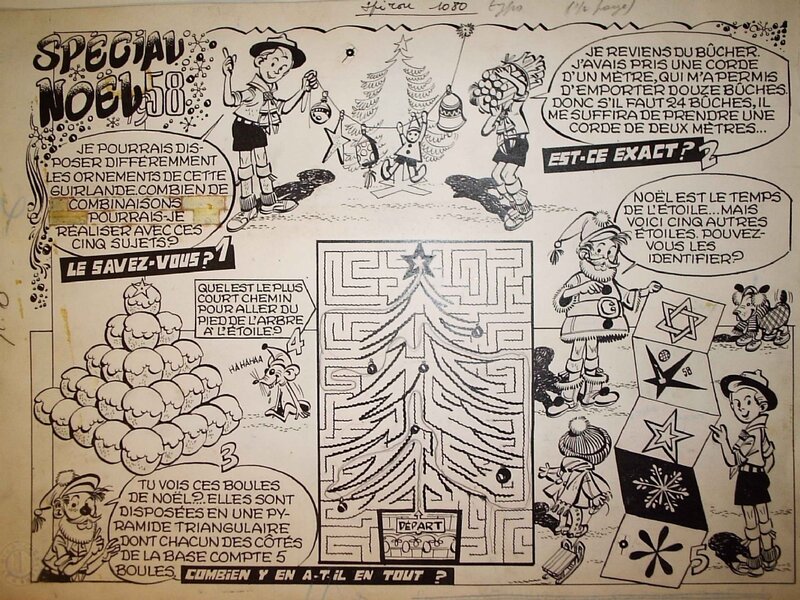 Spirou 1080 typo (1/2 page)
SPÉCIAL
NOËL 58
JE POURRAIS DIS-
POSER DIFFÉREMMENT
LES ORNEMENTS DE CETTE
GUIRLANDE. COMBIEN DE
COMBINAISONS
POURRAIS-JE
RÉALISER AVEC CES
CINQ SUJETS?
LE SAVEZ-VOUS? 1
JE REVIENS DU BÛCHER.
J'AVAIS PRIS UNE CORDE
D'UN MÈTRE, QUI M'A PERMIS
D'EMPORTER DOUZE BÛCHES.
DONC S'IL FAUT 24 BÛCHES, IL
ME SUFFIRA DE PRENDRE UNE
CORDE DE DEUX MÈTRES...
EST-CE EXACT? 2
TU VOIS CES BOULES
DE NOËL?.. ELLES SONT
DISPOSÉES EN UNE PY-
RAMIDE TRIANGULAIRE
DONT CHACUN DES CÔTÉS
DE LA BASE COMPTE 5
BOULES.
COMBIEN Y EN A-T-IL EN TOUT ?
3
QUEL EST LE PLUS
COURT CHEMIN
POUR ALLER DU
PIED DE L'ARBRE
A L'ÉTOILE?
4
HAHAHAA
DÉPART
NOËL EST LE TEMPS
DE L'ÉTOILE... MAIS
VOICI CINQ AUTRES
ÉTOILES. POUVEZ-
VOUS LES
IDENTIFIER?
58
5